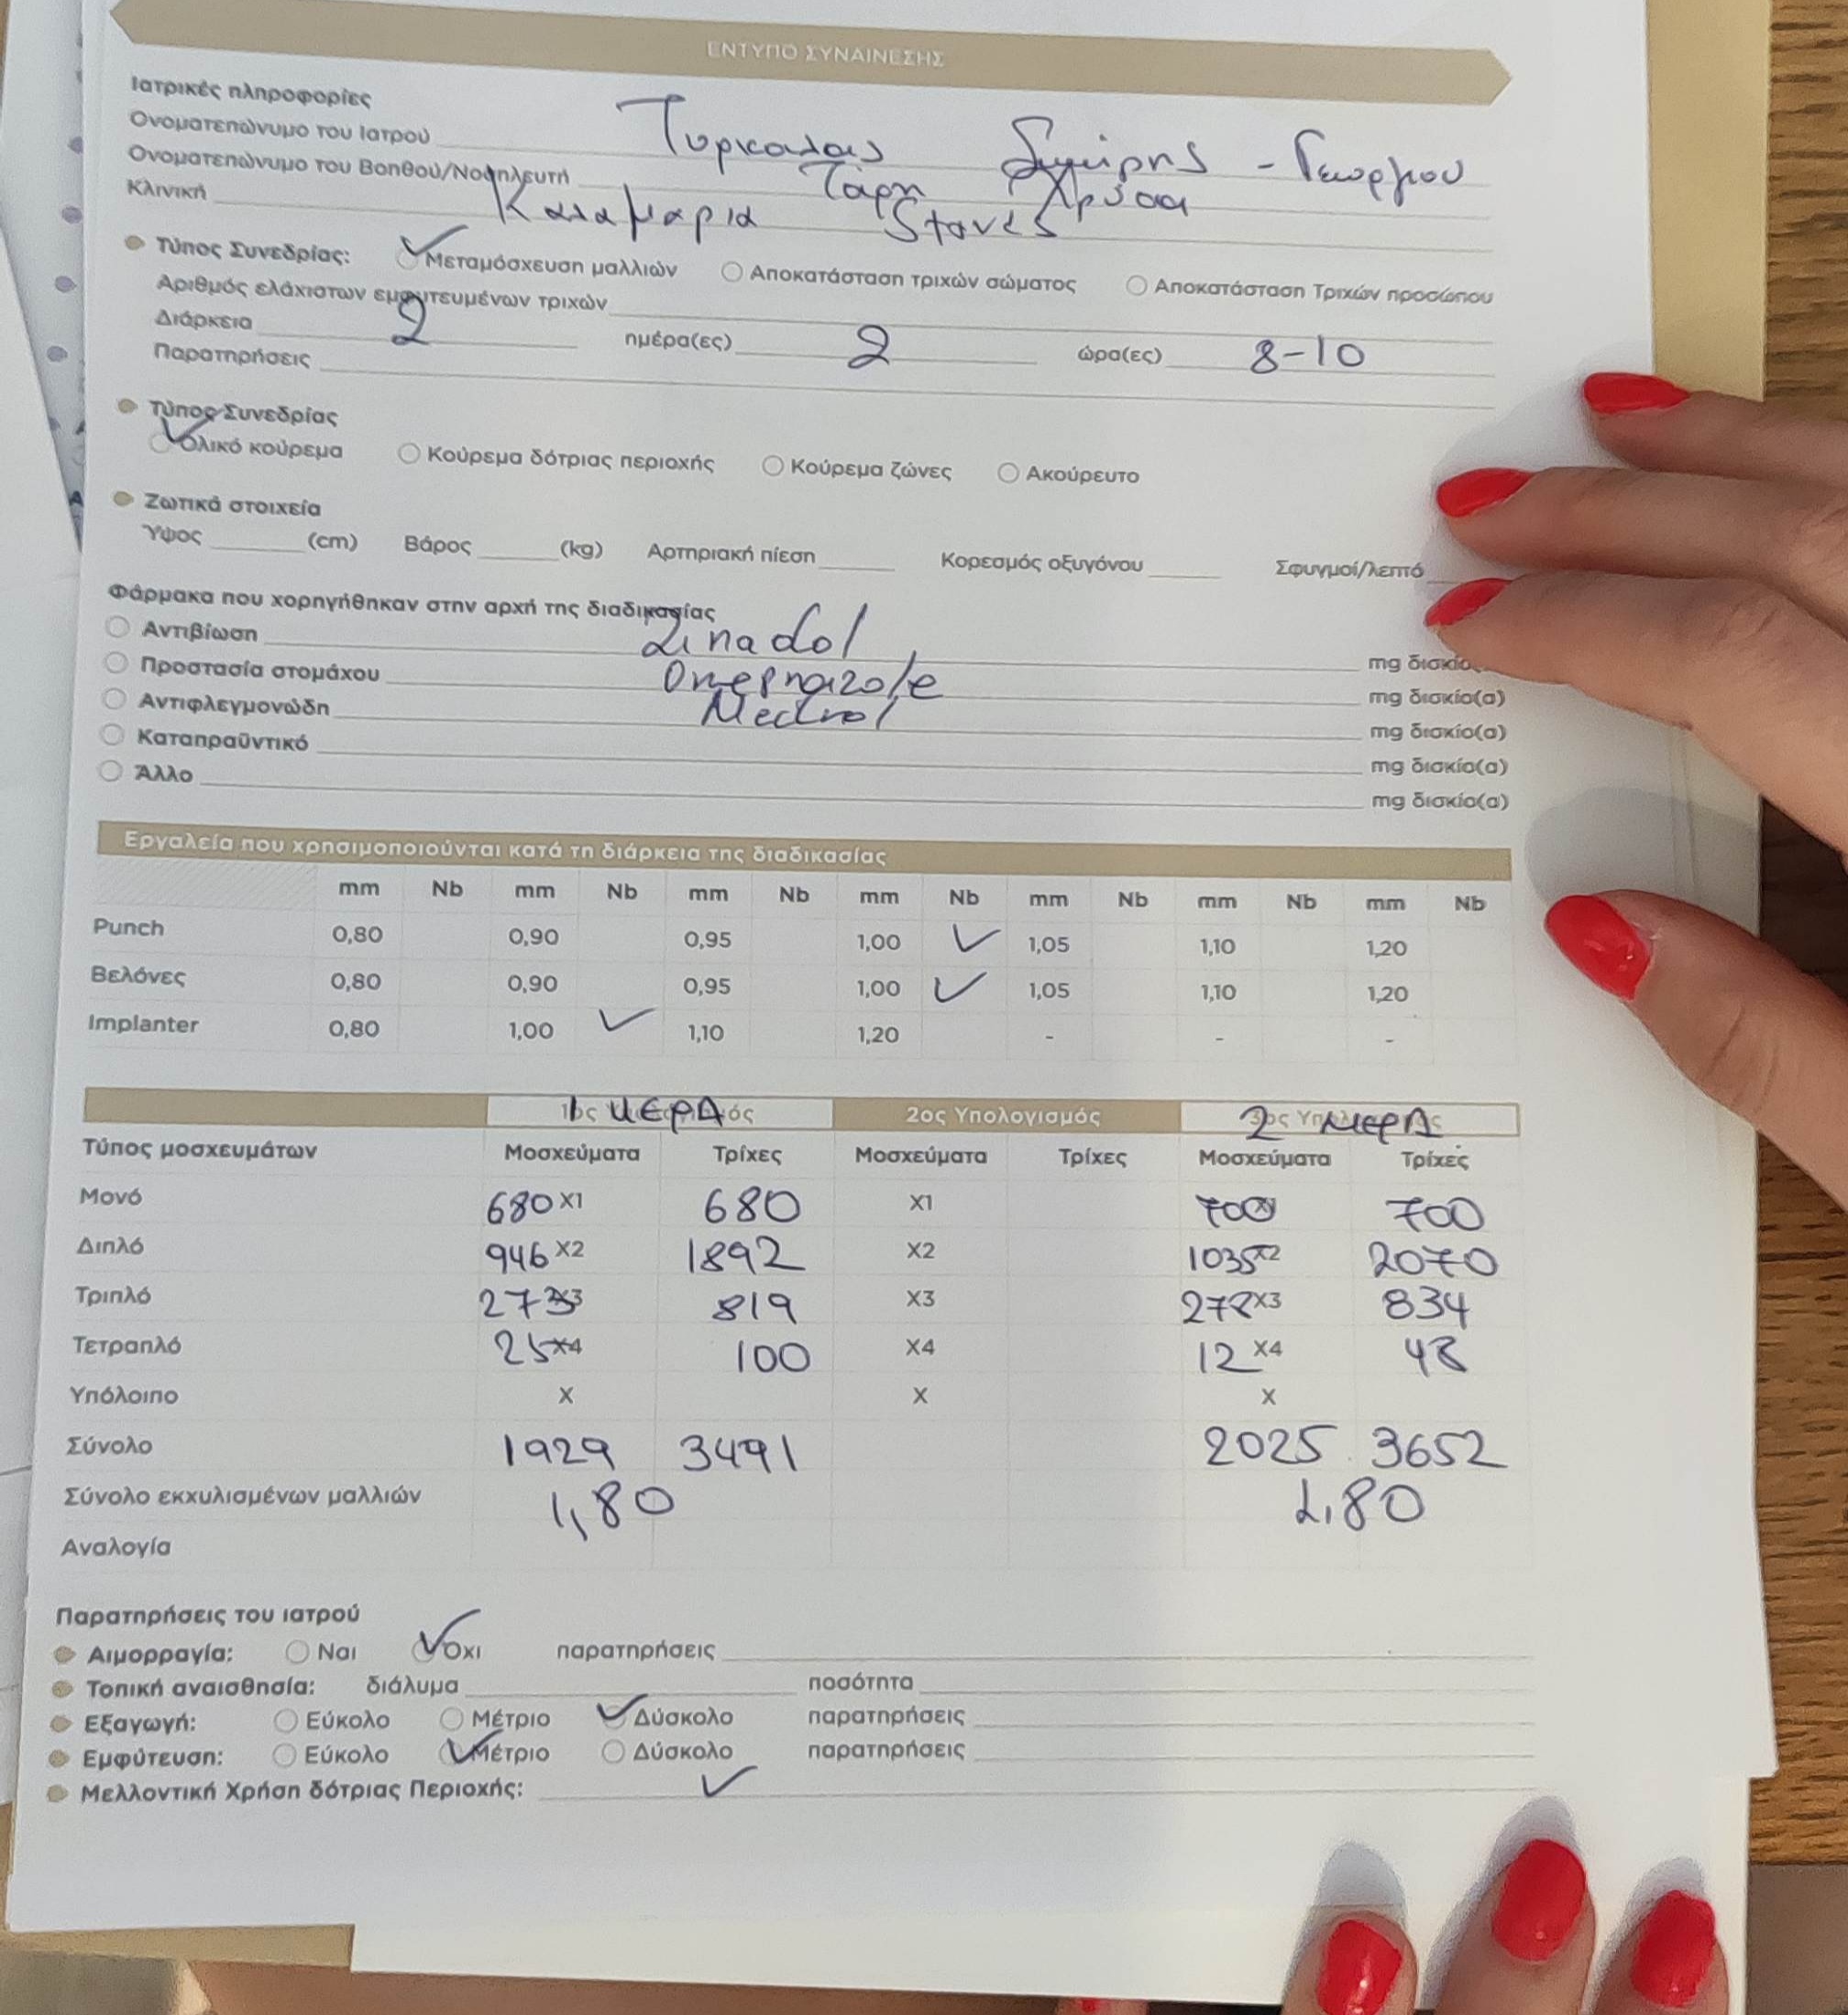 ΕΝΤΥΠΟ ΣΥΝΑΙΝΕΣΗΣ
Ιατρικές πληροφορίες
Ονοματεπώνυμο του Ιατρού Σμύρης - Γεωργίου
Ονοματεπώνυμο του Βοηθού/Νοσηλευτή Τάρη Χρύσα
Κλινική Καλαμαριά
Τύπος Συνεδρίας: ✓ Μεταμόσχευση μαλλιών Αποκατάσταση τριχών σώματος Αποκατάσταση Τριχών προσώπου
Αριθμός ελάχιστων εμφυτευμένων τριχών
Διάρκεια 2 ημέρα(ες) 2 ώρα(ες) 8-10
Παρατηρήσεις
Τύπος Συνεδρίας
✓ Ολικό κούρεμα Κούρεμα δότριας περιοχής Κούρεμα ζώνες Ακούρευτο
Ζωτικά στοιχεία
Ύψος (cm) Βάρος (kg) Αρτηριακή πίεση Κορεσμός οξυγόνου Σφυγμοί/λεπτό
Φάρμακα που χορηγήθηκαν στην αρχή της διαδικασίας
Αντιβίωση Zinadol mg δισκίο
Προστασία στομάχου Omeprazole mg δισκίο(α)
Αντιφλεγμονώδη Medrol mg δισκίο(α)
Καταπραϋντικό mg δισκίο(α)
Άλλο mg δισκίο(α)
Εργαλεία που χρησιμοποιούνται κατά τη διάρκεια της διαδικασίας
mm Nb mm Nb mm Nb mm Nb mm Nb mm Nb mm Nb
Punch 0,80 0,90 0,95 1,00 ✓ 1,05 1,10 1,20
Βελόνες 0,80 0,90 0,95 1,00 ✓ 1,05 1,10 1,20
Implanter 0,80 1,00 ✓ 1,10 1,20 - - -
1 ΜΕΡΑ 2ος Υπολογισμός 2 ΜΕΡΑ
Τύπος μοσχευμάτων Μοσχεύματα Τρίχες Μοσχεύματα Τρίχες Μοσχεύματα Τρίχες
Μονό 680 X1 680 X1 700 X1 700
Διπλό 946 X2 1892 X2 1035 X2 2070
Τριπλό 273 X3 819 X3 278 X3 834
Τετραπλό 25 X4 100 X4 12 X4 48
Υπόλοιπο X X X
Σύνολο 1929 3491 2025 3652
Σύνολο εκχυλισμένων μαλλιών 1,80 1,80
Αναλογία
Παρατηρήσεις του ιατρού
Αιμορραγία: Ναι ✓ Όχι παρατηρήσεις
Τοπική αναισθησία: διάλυμα ποσότητα
Εξαγωγή: Εύκολο Μέτριο ✓ Δύσκολο παρατηρήσεις
Εμφύτευση: Εύκολο ✓ Μέτριο Δύσκολο παρατηρήσεις
Μελλοντική Χρήση δότριας Περιοχής: ✓